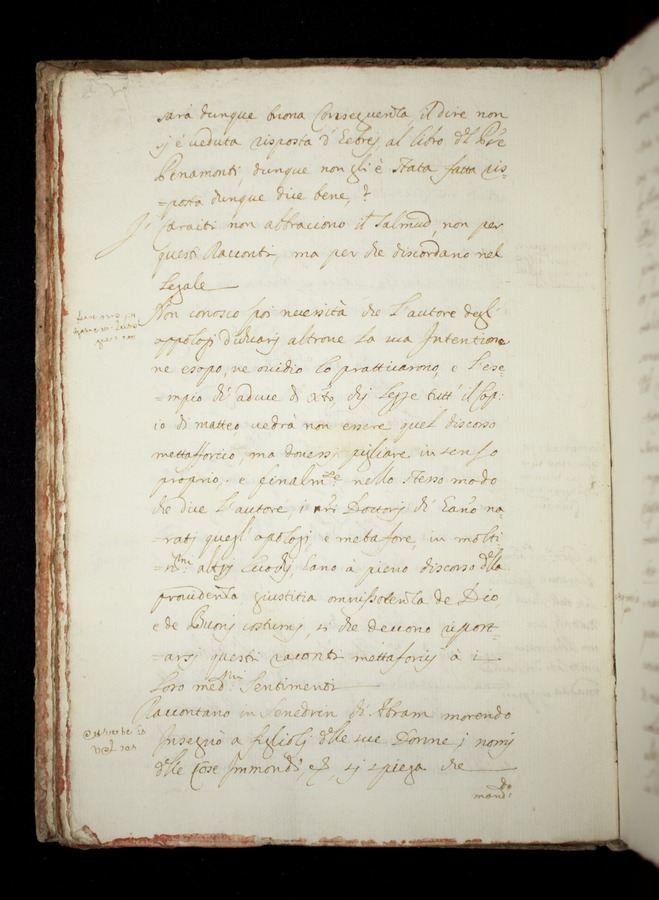 sarà dunque buona Conseguenza, il dire non
si è veduta risposta d'Eebrej al libro del Pre
Penamonti, dunque non gli è stata fatta ris=
=posta dunque dice bene, ?
J' Karaiti non abbraciono il Talmud, non per
questi Racconti, ma per che discordano nel
Legale
Non conosco poi necessità che L'autore degl'
appologj dichiarj altrove la sua Intentione
ne esopo, ne ovidio lo pratticarono, e L'ese=
=mpio di aduce di Xto, chi legge tutt' il Cap:
io di matteo vedrà non essere quel discorso
mettafforico, ma doversi pigliare in senso
proprio, e finalmte nello stesso modo
che dice L'autore i nri Dottorj di Eano na=
ratj quegl' apologj e metafore, in molti=
=mi altrj Luoghj, l'ano à pieno discorso della
providenza giustitia omnipotenza de Dio
e de Buonj costumj, si che devono riport=
=arsj questi raconti mettaforicj à i
Loro medmi Sentimenti
Raccontano in Senedrin di Abram morendo
Insegnò a figliolj delle sue Donne i nomj
delle Cose Immonde, e si spiega che
mand:o